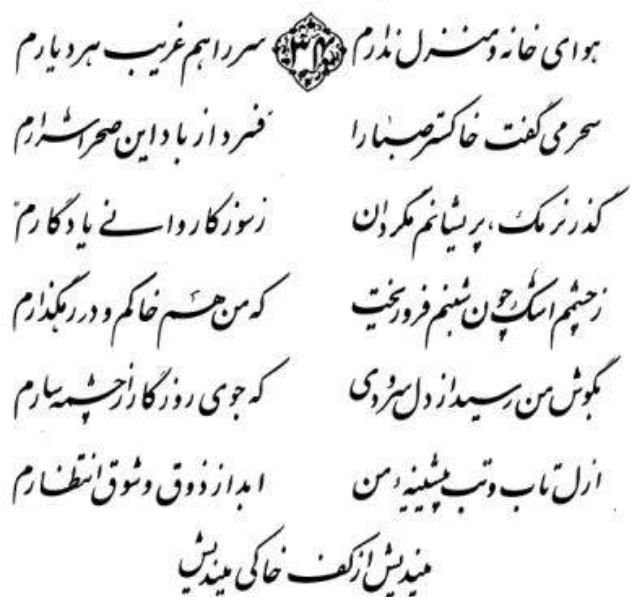 هوای خانه و منزل ندارم ۳۴ سر راهم غریب هر دیارم
سحر می گفت خاکستر صبا را فسرد از باد این صحرا شرارم
گذر نرمک، پریشانم مگردان ز سوز کاروانے یادگارم
ز چشمم اشک چون شبنم فرو ریخت که من هم خاکم و در رهگذارم
بگوش من رسید از دل سرودی که جوی روزگار از چشمه سارم
ازل تاب و تب پیشینهٔ من ابد از ذوق و شوق انتظارم
میندیش از کف خاکی میندیش